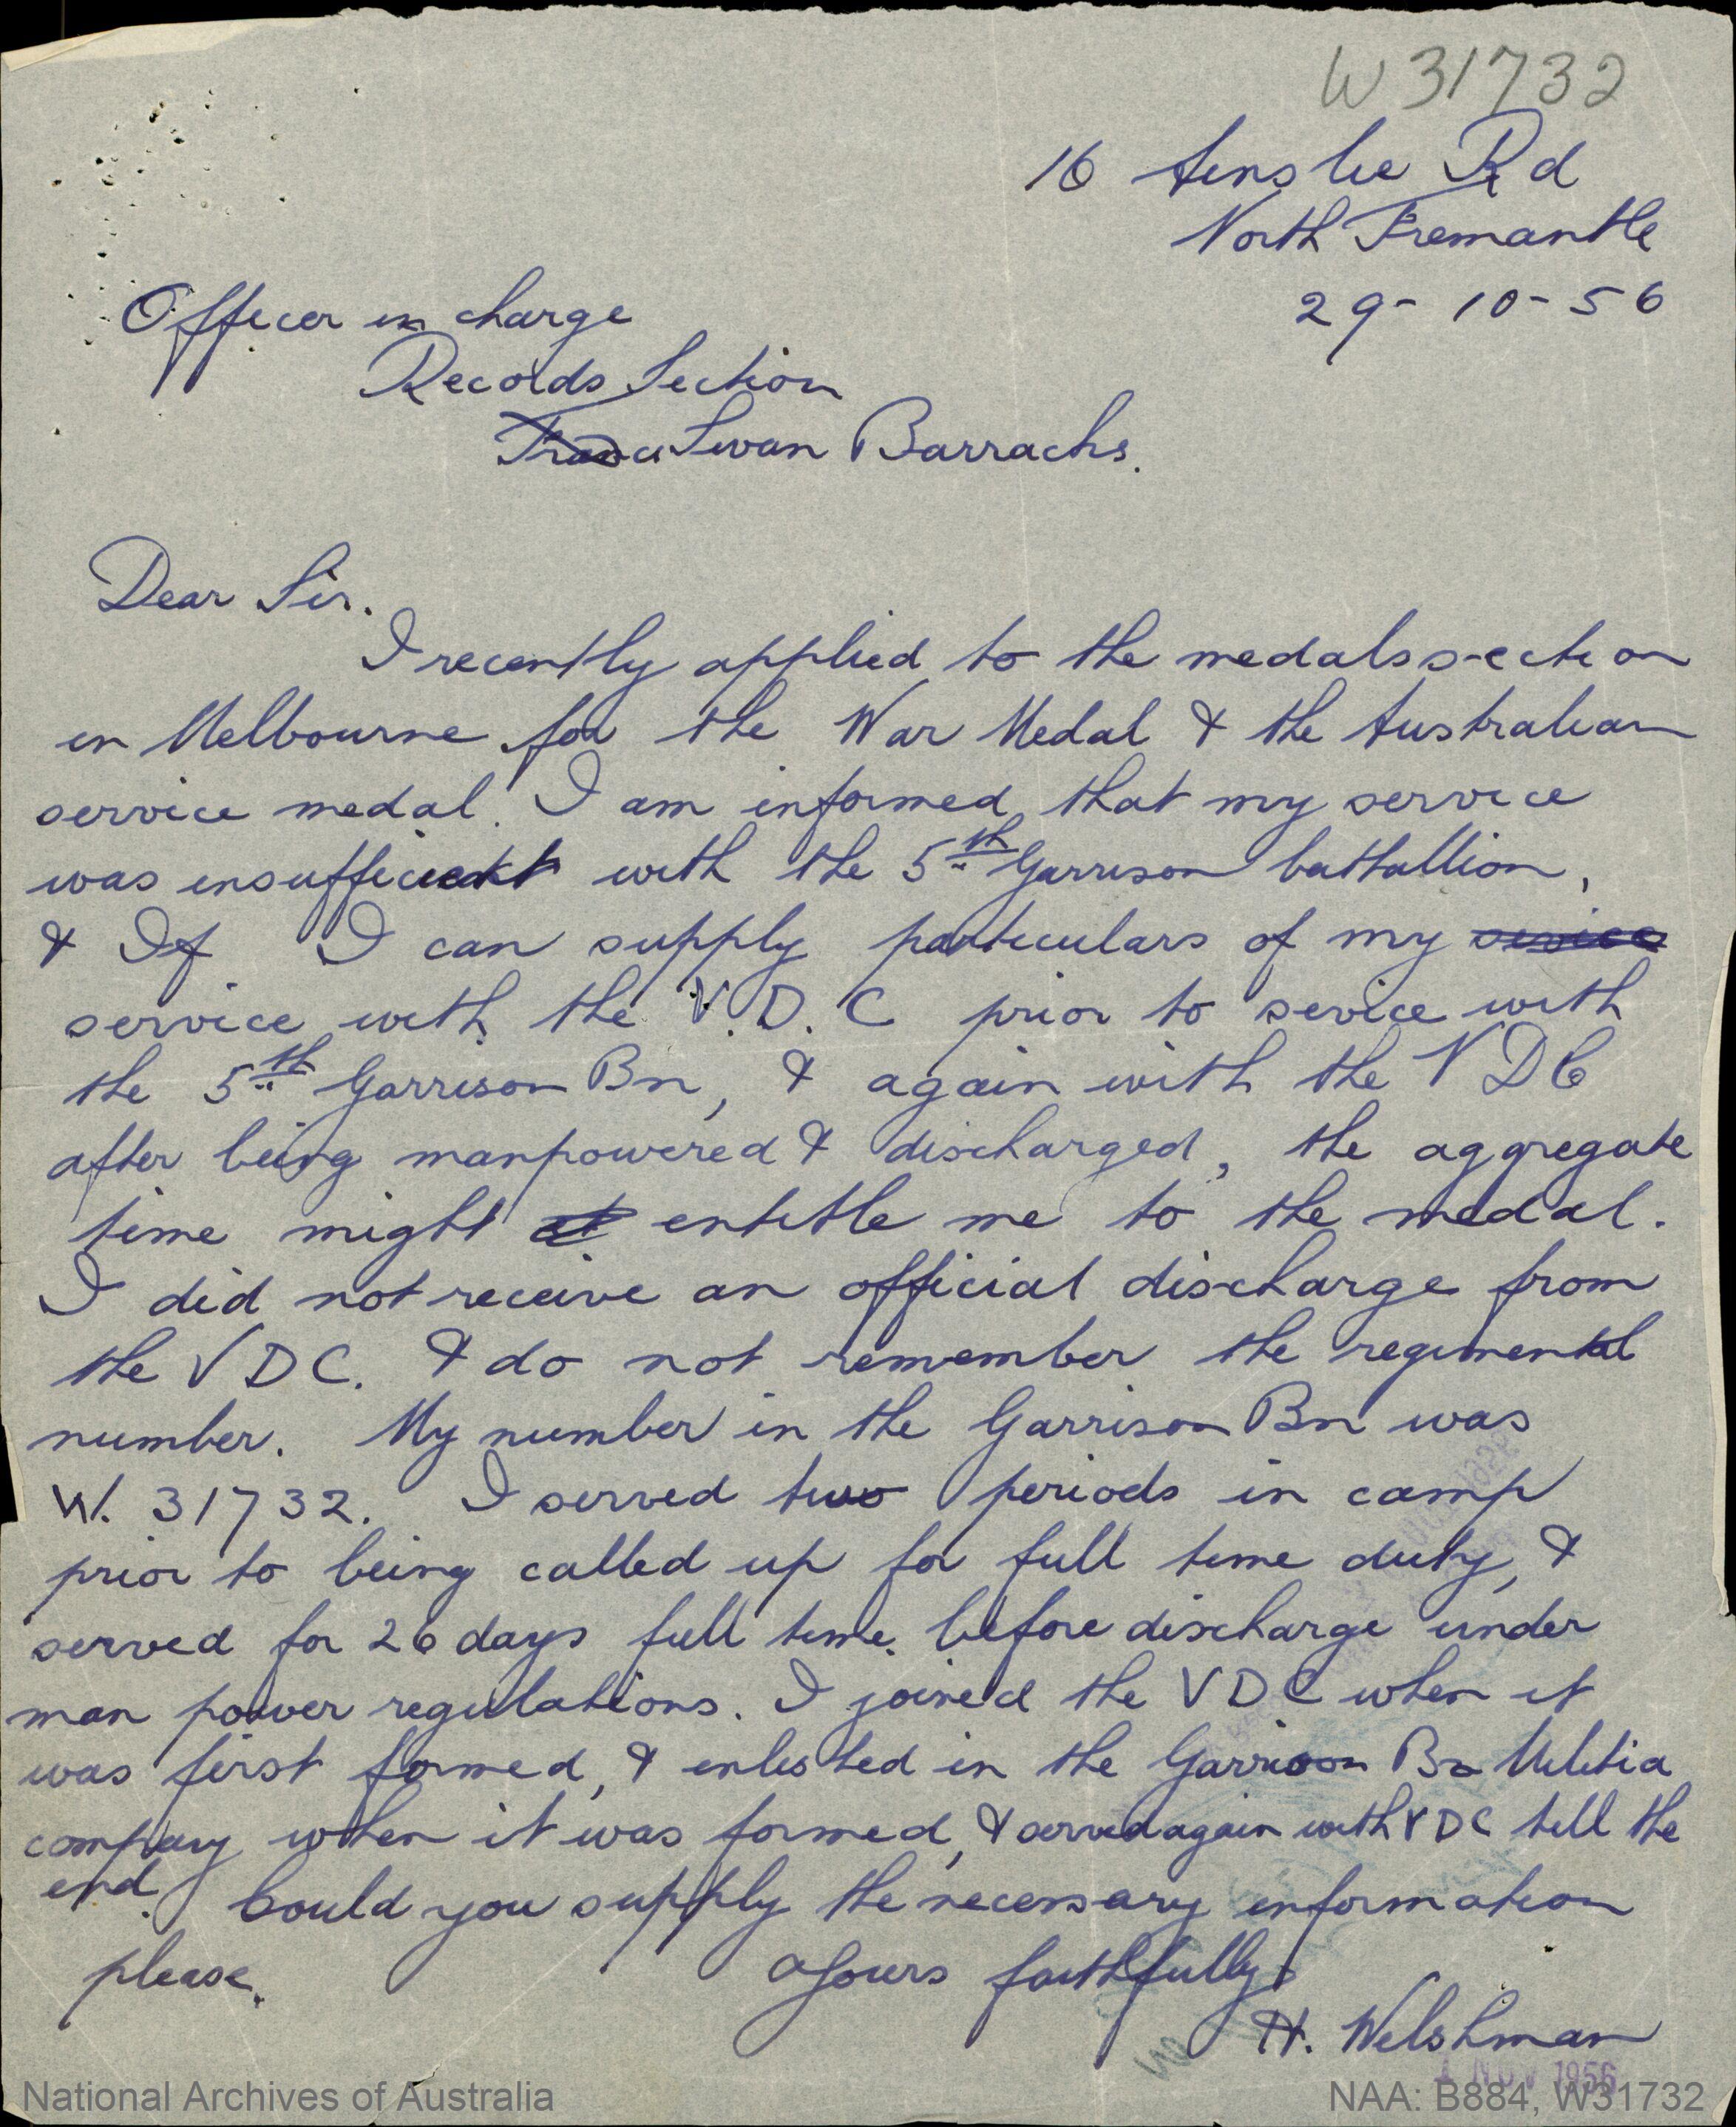 W31732
16 Ainslie Rd
North Fremantle
29-10-56
Officer in charge
Records Section
Swan Barracks.
Dear Sir.
I recently applied to the medals section
in Melbourne for the War Medal & the Australian
service medal. I am informed that my service
was insufficient with the 5th Garrison battallion,
& If I can supply particulars of my service
service with the V.D.C prior to sevice with
the 5th Garrison Bn, & again with the VDC
after being manpowered & discharged, the aggregate
time might entitle me to the medal.
I did not receive an official discharge from
the VDC. & do not remember the regimental
number. My number in the Garrison Bn was
W. 31732. I served two periods in camp
prior to being called up for full time duty, &
served for 26 days full time. before discharge under
man power regulations. I joined the VDC when it
was first formed, & enlisted in the Garrison Bn Militia
company when it was formed, & served again with VDC till the
end. Could you supply the necessary information
please.
Yours faithfully
H. Welshman
NOV 1956
National Archives of Australia
NAA: B884, W31732